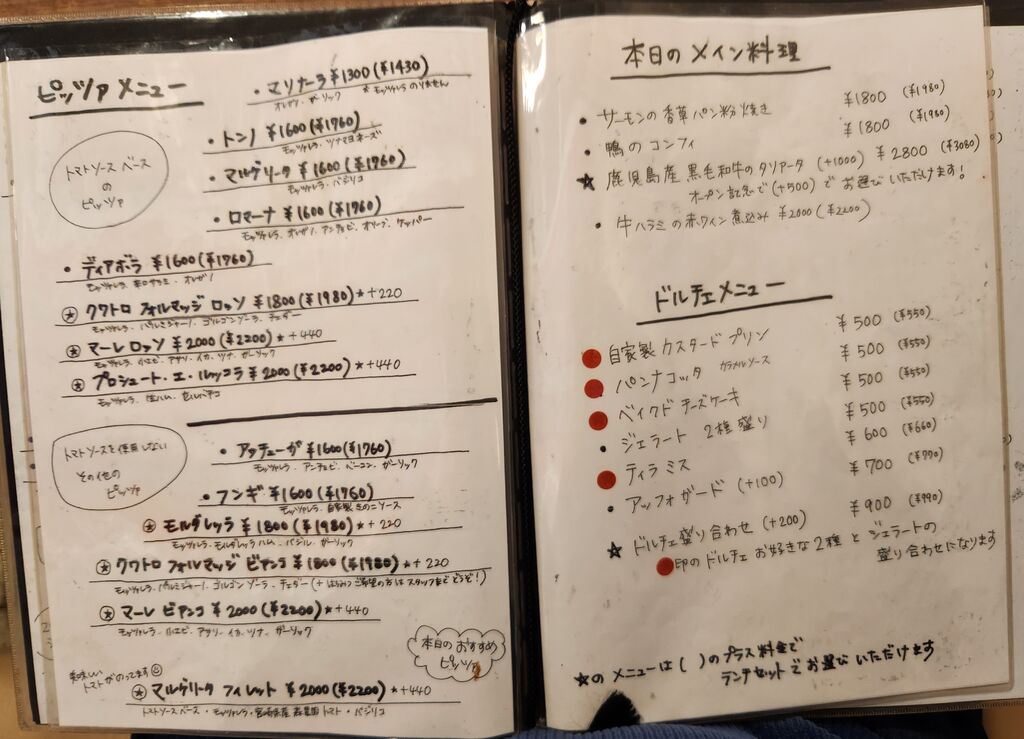 ピッツァ メニュー
トマトソース ベース
の
ピッツァ
・マリナーラ ¥1300(¥1430)
オレガノ、ガーリック ※モッツァレラ のりません
・トンノ ¥1600(¥1760)
モッツァレラ、ツナマヨネーズ
・マルゲリータ ¥1600(¥1760)
モッツァレラ、バジリコ
・ロマーナ ¥1600(¥1760)
モッツァレラ、オレガノ、アンチョビ、オリーブ、ケッパー
・ディアボラ ¥1600(¥1760)
モッツァレラ、辛口サラミ、オレガノ
★ クワトロ フォルマッジ ロッソ ¥1800(¥1980)★+220
モッツァレラ、パルミジャーノ、ゴルゴンゾーラ、チェダー
★ マーレ ロッソ ¥2000(¥2200)★+440
モッツァレラ、小エビ、アサリ、イカ、ツナ、ガーリック
★ プロシュート・エ・ルッコラ ¥2000(¥2200)★+440
モッツァレラ、生ハム、セルバチコ
トマトソースを使用しない
その他の
ピッツァ
・アッチューガ ¥1600(¥1760)
モッツァレラ、アンチョビ、ベーコン、ガーリック
・フンギ ¥1600(¥1760)
モッツァレラ、自家製きのこソース
★ モルダレッラ ¥1800(¥1980)★+220
モッツァレラ、モルダレッラハム、バジル、ガーリック
★ クワトロ フォルマッジ ビアンコ ¥1800(¥1980)★+220
モッツァレラ、パルミジャーノ、ゴルゴンゾーラ、チェダー(+はちみつ ご希望の方は スタッフまで どうぞ!)
★ マーレ ビアンコ ¥2000(¥2200)★+440
モッツァレラ、小エビ、アサリ、イカ、ツナ、ガーリック
本日の おすすめ
ピッツァ
美味しい
トマトがのってます
★ マルゲリータ フィレット ¥2000(¥2200)★+440
トマトソースベース・モッツァレラ・宮崎県産 トマト・バジリコ
本日の メイン料理
・サーモンの 香草パン粉焼き ¥1800 (¥1980)
・鴨の コンフィ ¥1800 (¥1980)
★ 鹿児島産 黒毛和牛の タリアータ (+1000) ¥2800 (¥3080)
オープン記念で (+500) で お選び いただけます!
・牛ハラミ の 赤ワイン煮込み ¥2000 (¥2200)
ドルチェ メニュー
自家製 カスタード プリン ¥500 (¥550)
パンナコッタ カラメルソース ¥500 (¥550)
ベイクド チーズケーキ ¥500 (¥550)
・ジェラート 2種盛り ¥500 (¥550)
ティラミス ¥600 (¥660)
・アッフォガード (+100) ¥700 (¥770)
★ ドルチェ盛り合わせ (+200) ¥900 (¥990)
印の ドルチェ お好きな2種 と ジェラートの
盛り合わせになります
★の メニューは ( ) の プラス料金で
ランチセットで お選び いただけます